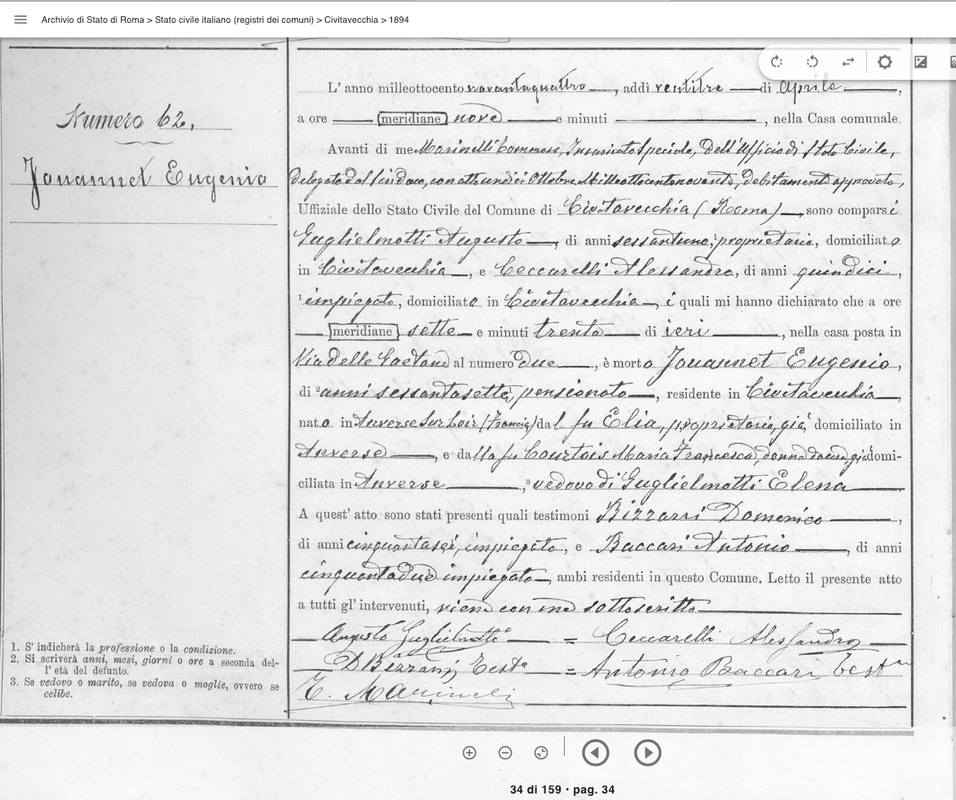 Archivio di Stato di Roma > Stato civile italiano (registri dei comuni) > Civitavecchia > 1894
Numero 62,
Jouannet Eugenio
1. S' indicherà la professione o la condizione.
2. Si scriverà anni, mesi, giorni o ore a seconda del-
l' età del defunto.
3. Se vedovo o marito, se vedova o moglie, ovvero se
celibe.
L' anno milleottocento novantaquattro, addì ventitre di Aprile,
a ore meridiane nove e minuti, nella Casa comunale.
Avanti di me Marinelli Tommaso, Incaricato Speciale, dell'Ufficio di Stato Civile,
delegato dal Sindaco, con atto undici Ottobre Milleottocentonovanta, debitamente approvato,
Uffiziale dello Stato Civile del Comune di Civitavecchia (Roma), sono comparsi
Guglielmotti Augusto, di anni sessantuno, proprietario, domiciliato
in Civitavecchia, e Ceccarelli Alessandro, di anni quindici,
1 impiegato, domiciliato in Civitavecchia, i quali mi hanno dichiarato che a ore
meridiane sette e minuti trenta di ieri, nella casa posta in
Via delle al numero due, è morto Jouannet Eugenio,
di 2 anni sessantasette, pensionato, residente in Civitavecchia,
nato in Auverse Sur Loir (Francia) dal fu Elia, proprietario, già domiciliato in
Auverse, e dalla fu Courtois Maria Francesca, donna di casa, già domi-
ciliata in Auverse, 3 vedovo di Guglielmotti Elena
A quest' atto sono stati presenti quali testimoni Bizzarri Domenico,
di anni cinquantasei, impiegato, e Baccari Antonio, di anni
cinquantadue impiegato, ambi residenti in questo Comune. Letto il presente atto
a tutti gl' intervenuti, viene con me sottoscritto
Augusto Guglielmotti = Ceccarelli Alessandro
D. Bizzarri Teste = Antonio Baccari Teste
T. Marinelli
34 di 159 • pag. 34